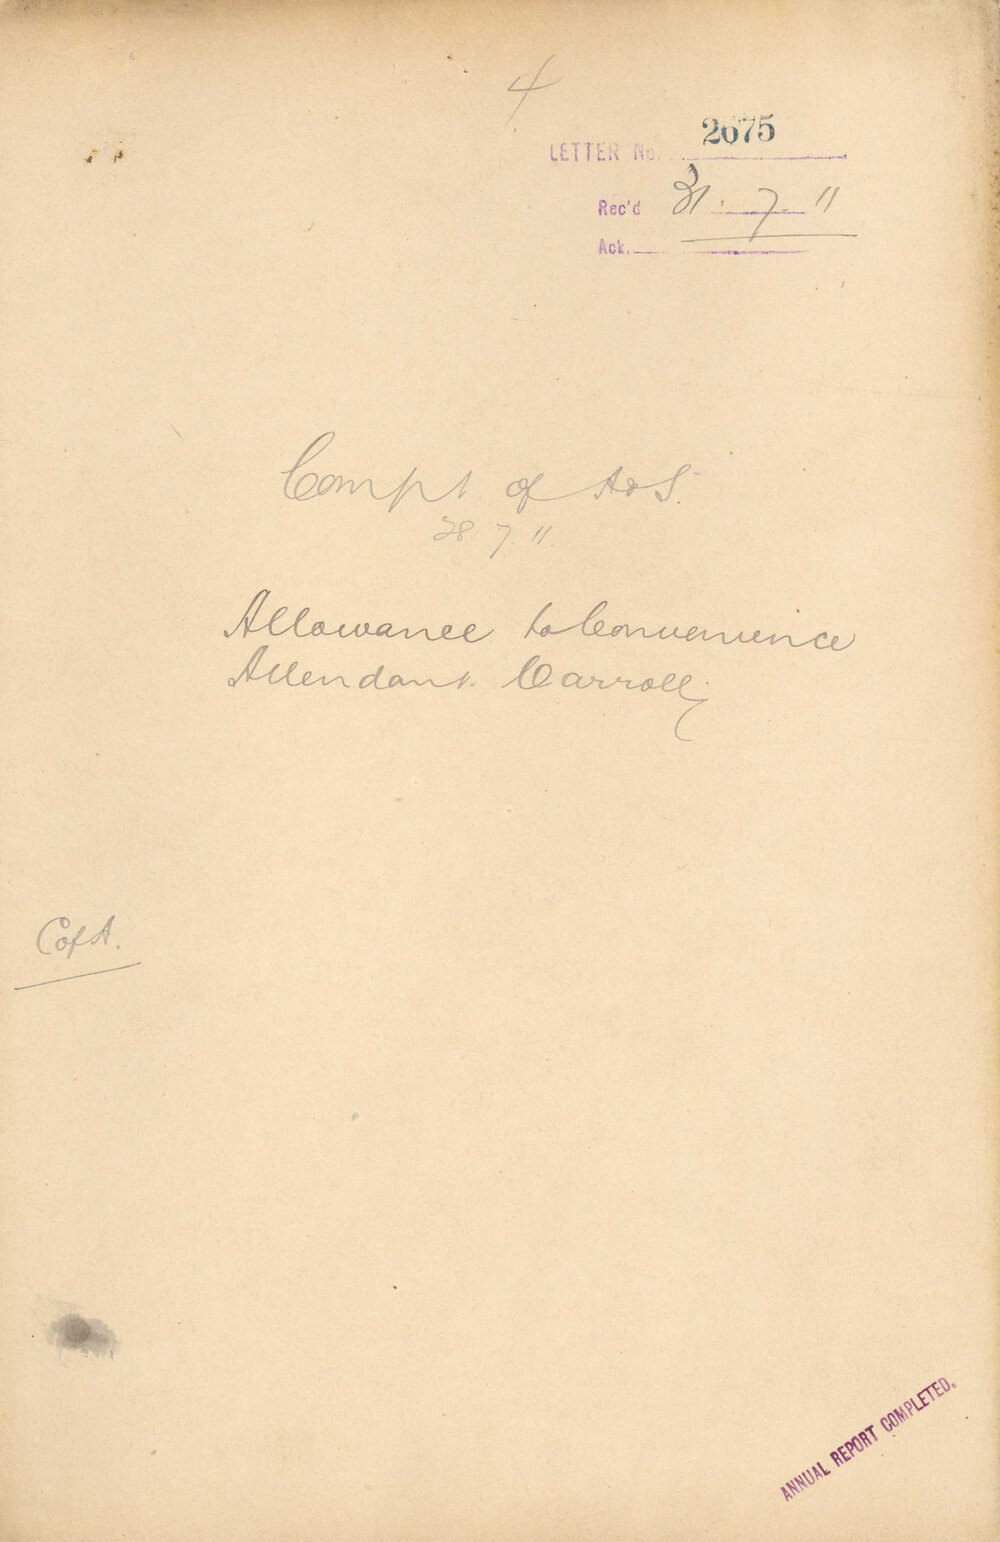 4
LETTER No. 2675
Rec'd 31. 7. 11
Ack.
Compt. of A & S.
28. 7. 11.
Allowance to Convenience
Attendant Carroll,
C of A.
ANNUAL REPORT COMPLETED.